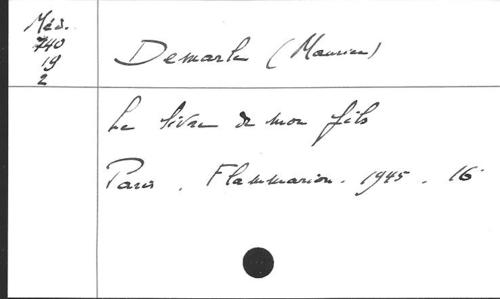 Méd.
740
19
2
Demarle (Maurice)
Le livre de mon fils
Paris. Flammarion. 1945. 16°